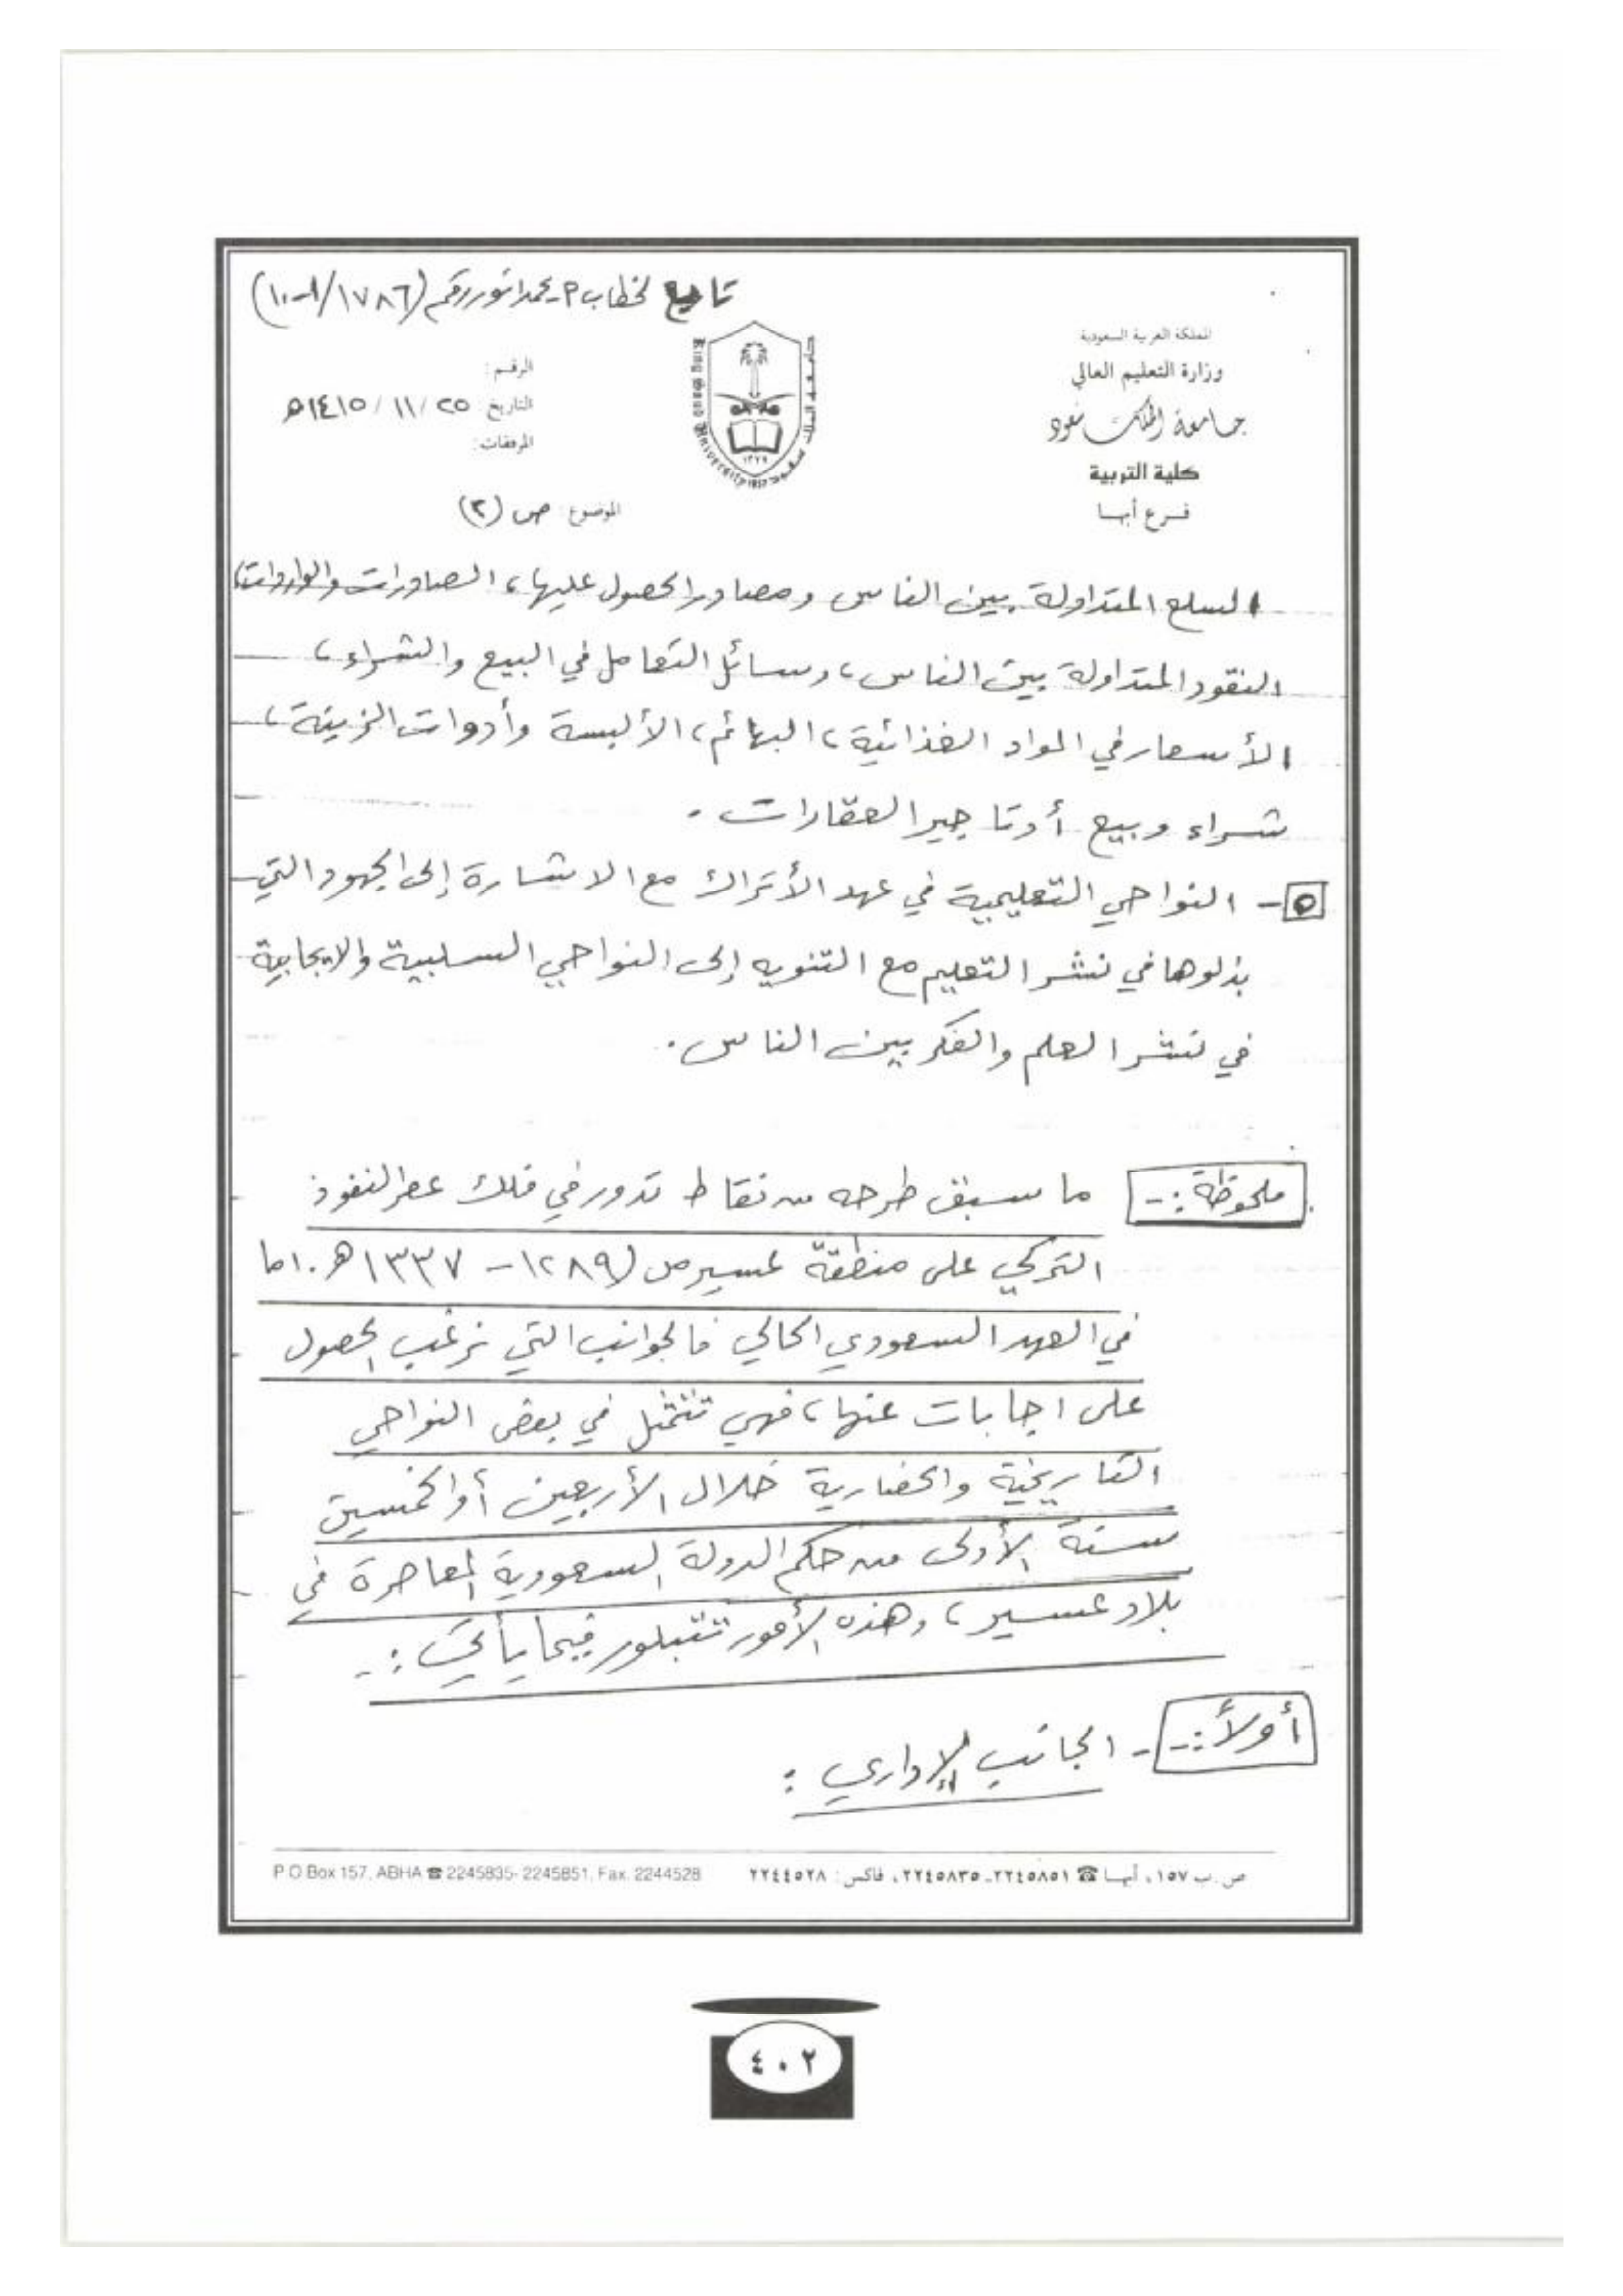 تابع لخطاب م. محمد أنور رقم (١٧٨٦/١-١٠)
المملكة العربية السعودية
وزارة التعليم العالي
جامعة الملك سعود
كلية التربية
فرع أبها
جامعة الملك سعود
King Saud University 1957
١٣٧٧
الرقم:
التاريخ: ٢٥/ ١١/ ١٤١٥هـ
المرفقات:
الموضوع: ص (٢)
السلع المتداولة بين الناس ومصادر الحصول عليها، الصادرات والواردات،
النقود المتداولة بين الناس، وسائل التعامل في البيع والشراء،
الأسعار في المواد الغذائية، البهائم، الألبسة وأدوات الزينة،
شراء وبيع أو تاجير العقارات.
٥- النواحي التعليمية في عهد الأتراك مع الاشارة إلى الجهود التي
بذلوها في نشر التعليم مع التنويه إلى النواحي السلبية والايجابية
في نشر العلم والفكر بين الناس.
ملحوظة:- ما سبق طرحه من نقاط تدور في فلك عصر النفوذ
التركي على منطقة عسير من (١٢٨٩- ١٣٣٧هـ. اما
في العهد السعودي الحالي فالجوانب التي نرغب الحصول
على اجابات عنها، فهي تتمثل في بعض النواحي
التاريخية والحضارية خلال الأربعين أو الخمسين
سنة الأولى من حكم الدولة السعودية المعاصرة في
بلاد عسير، وهذه الأمور تتبلور فيما يأتي:-
أولاً:- - الجانب الإداري:
ص.ب ١٥٧، أبها ☎ ٢٢٤٥٨٥١-٢٢٤٥٨٣٥، فاكس: ٢٢٤٤٥٢٨
P O Box 157, ABHA ☎ 2245835- 2245851, Fax. 2244528
٤٠٢